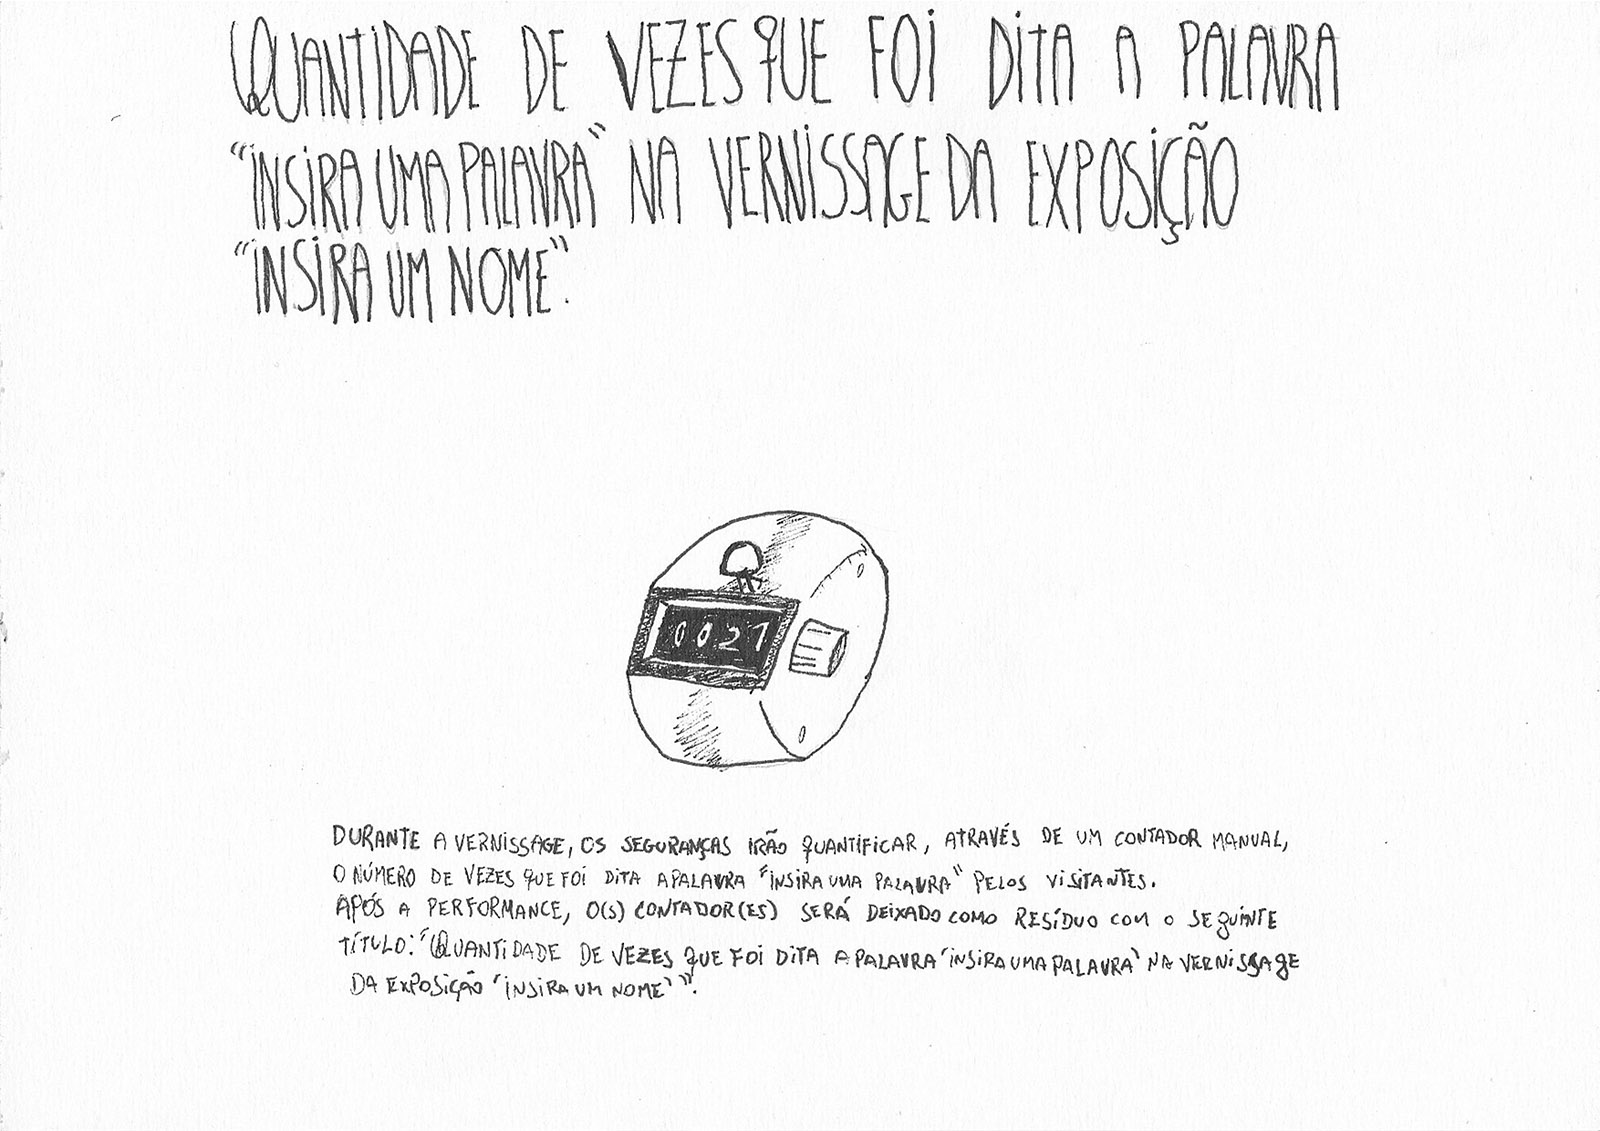 QUANTIDADE DE VEZES QUE FOI DITA A PALAVRA
"INSIRA UMA PALAVRA" NA VERNISSAGE DA EXPOSIÇÃO
"INSIRA UM NOME".
0021
DURANTE A VERNISSAGE, OS SEGURANÇAS IRÃO QUANTIFICAR, ATRAVÉS DE UM CONTADOR MANUAL,
O NÚMERO DE VEZES QUE FOI DITA A PALAVRA "INSIRA UMA PALAVRA" PELOS VISITANTES.
APÓS A PERFORMANCE, O(S) CONTADOR(ES) SERÁ DEIXADO COMO RESÍDUO COM O SEGUINTE
TÍTULO: "QUANTIDADE DE VEZES QUE FOI DITA A PALAVRA 'INSIRA UMA PALAVRA' NA VERNISSAGE
DA EXPOSIÇÃO 'INSIRA UM NOME'".